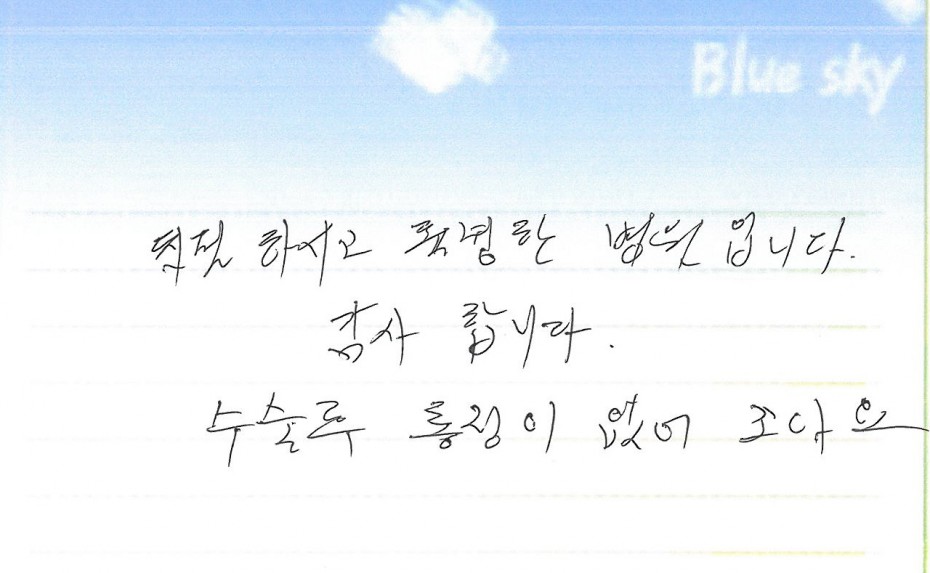 Blue sky
친절 하시고 훌륭한 병원 입니다.
감사 합니다.
수술후 통증이 없어 조아요